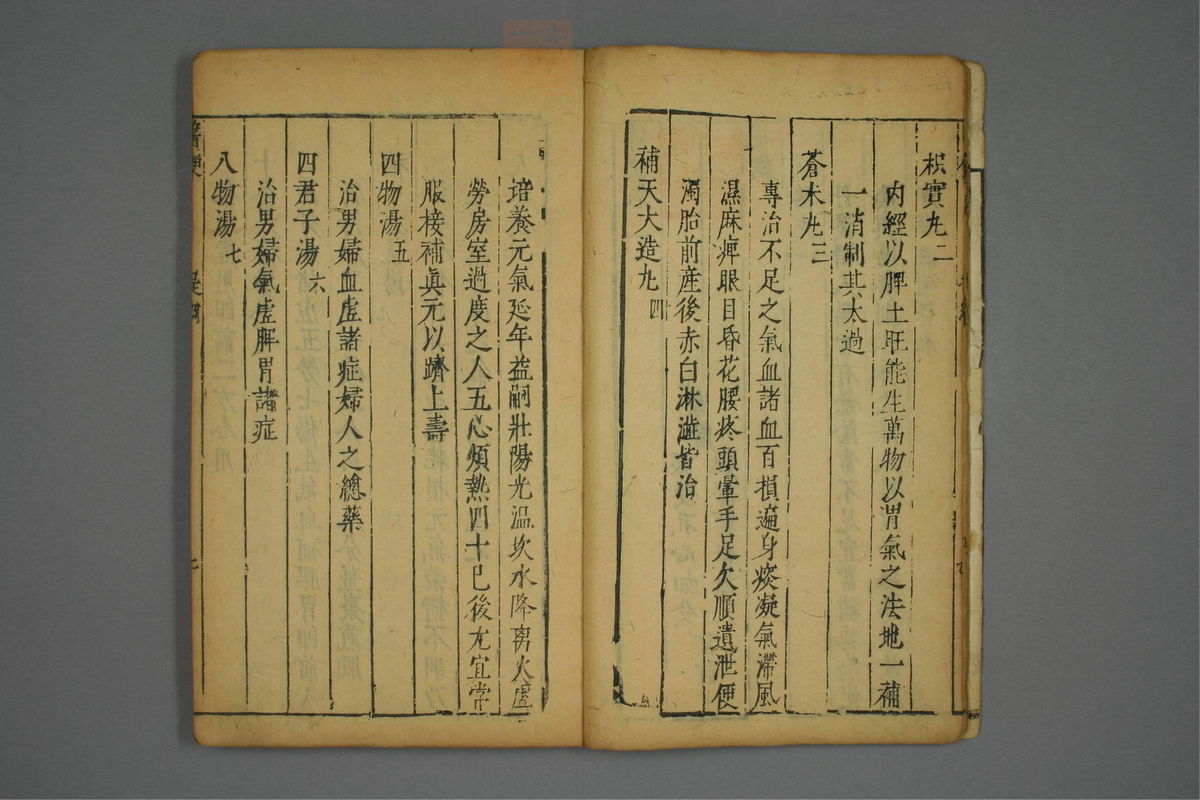 枳實丸二
内經以脾土旺能生萬物以胃氣之法地一補
一消制其太過
蒼朮丸三
專治不足之氣血諸血百損遍身痰凝氣滯風
濕麻痺眼目昏花腰疼頭暈手足欠順遺泄便
濁胎前産後赤白淋澁皆治
補天大造丸四
培養元氣延年益嗣壯陽光温坎水降离火虚
勞房室過度之人五心煩熱四十已後尤宜常
服接補眞元以躋上壽
四物湯五
治男婦血虚諸症婦人之總藥
四君子湯六
治男婦氣虚脾胃諸症
八物湯七